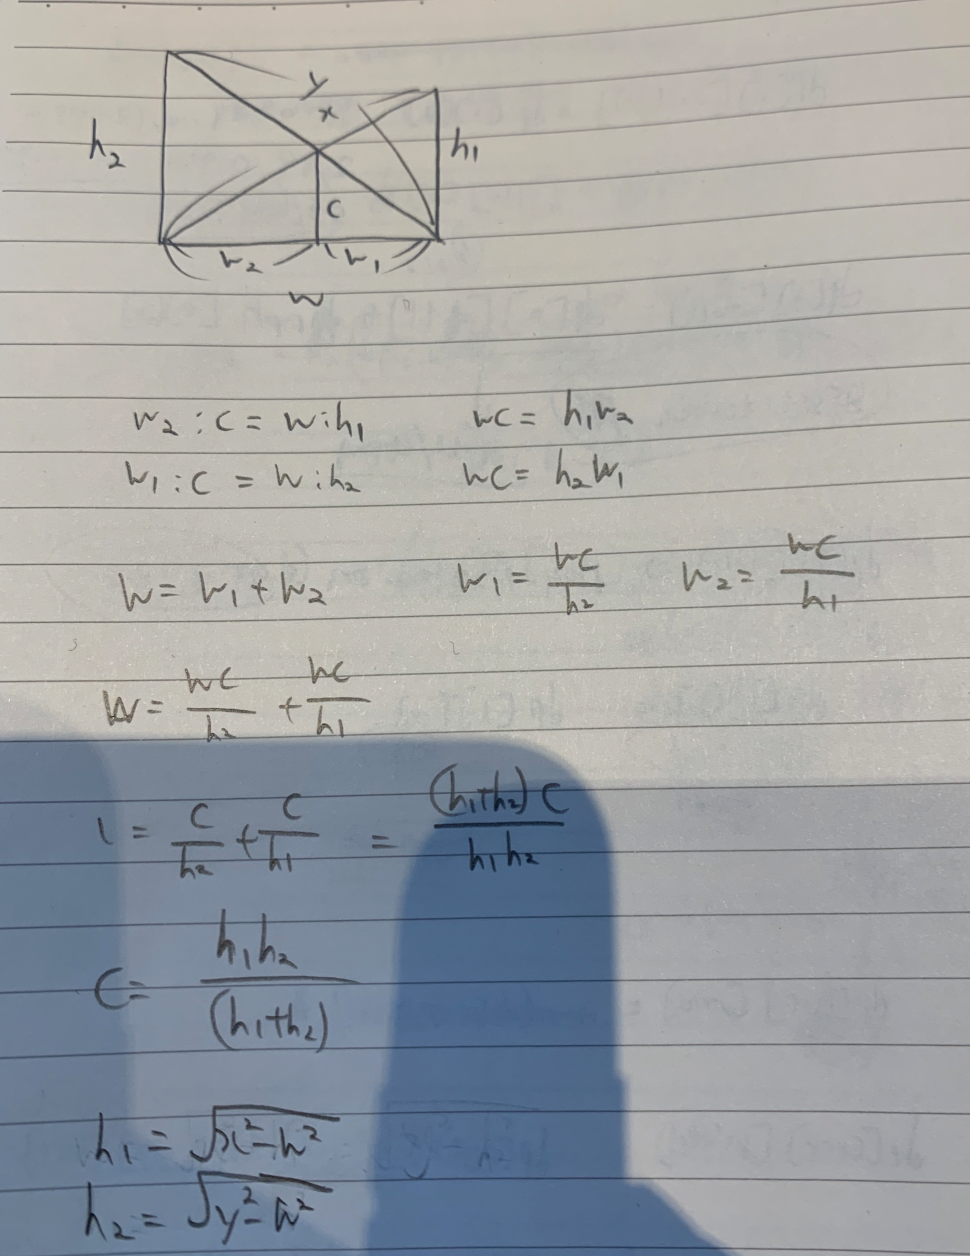 y
x
h₂
h₁
c
w₂ w₁
w
w₂ : c = w : h₁ wc = h₁w₂
w₁ : c = w : h₂ wc = h₂w₁
w = w₁ + w₂ w₁ = wc/h₂ w₂ = wc/h₁
w = wc/h₂ + wc/h₁
1 = c/h₂ + c/h₁ = (h₁+h₂)c/h₁h₂
c = h₁h₂/(h₁+h₂)
h₁ = √x²-w²
h₂ = √y²-w²